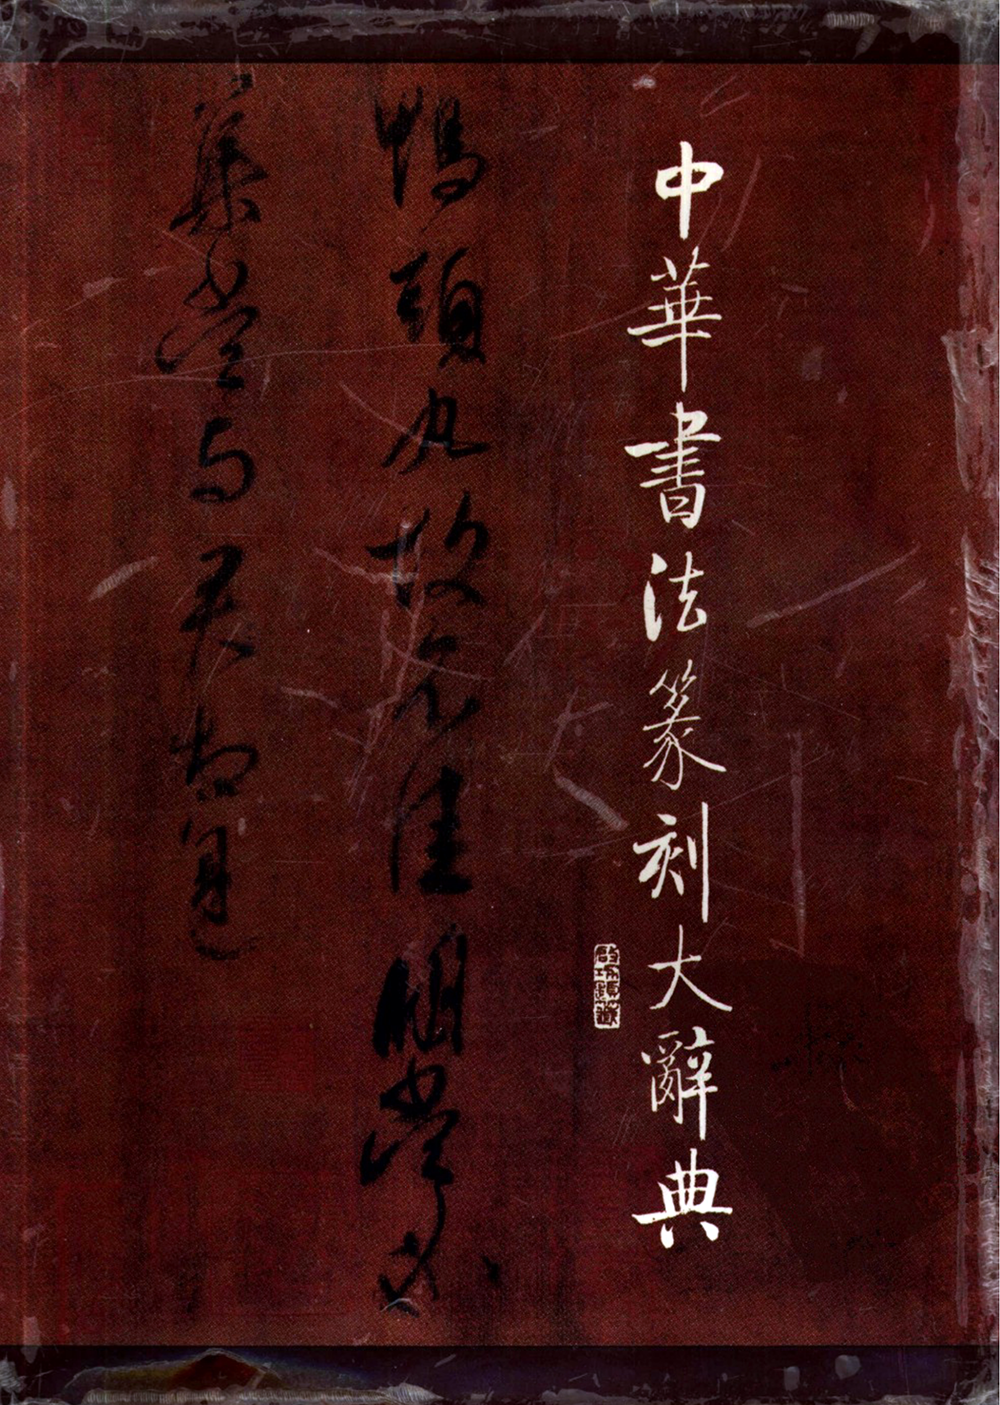 中華書法篆刻大辭典
鴨頭丸故不佳明當必
集當與君相見